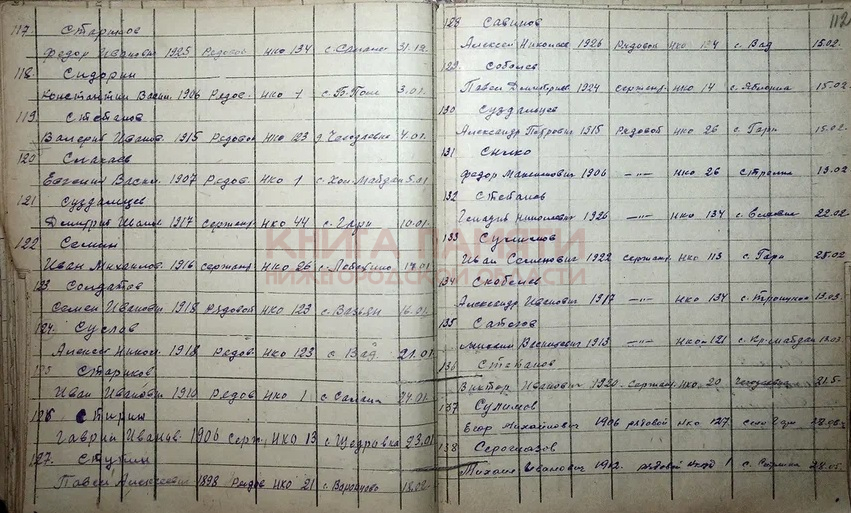 117. Стариков
Федор Иванович 1925 Рядовой НКО 134 31.12
118. Сидорин
Константин Васил. 1906 Рядов. НКО 1 с. Б-Поле 3.01.
119 Степанов
Валерий Иванов. 1915 Рядовой НКО 123 4.01.
120
Евгений Васил. 1907 Рядов. НКО 1 5.01
121 Суздальцев
Дмитрий Иванов 1917 сержант. НКО 44 с. Гари 10.01.
122 Семин
Иван Михайлов. 1916 сержант. НКО 26 17.01
123 Солдатов
Семен Иванови 1918 Рядовой НКО 123 16.01.
124. Суслов
Алексей Никол. 1918 Рядов. НКО 123 с Вад. 21.01.
125 Стариков
Иван Иванови 1910 Рядов НКО 1 24.01.
126 Стирин
Гаврил Иванов. 1906 серж. НКО 13 с Щедровка 23.01
127. Ступин
Павел Алексеевич 1898 Рядов НКО 21 с. Воронцово 18.02
112
128 Савинов
Алексей Николае 1926 Рядовой НКО 134 с. Вад 15.02.
129. Соболев
Павел Дмитриев 1924 сержант. НКО 14 с. Яблонка 15.02.
130 Суздальцев
Александр Петрович 1915 Рядовой НКО 26 с. Гари 15.02.
131
Федор Максимович 1906 —"— НКО 26 19.02
132 Степанов
Геннадий Николаевич 1926 —"— НКО 134 22.02.
133 Сулимов
Иван Семенович 1922 сержант. НКО 113 с. Гари 28.02
134 Скобелев
Александр Иванович 1917 —"— НКО 134 13.03.
135 Сатегов
Василевич 1913 —"— НКО 121 с. Кр. Майдан 13.03
136 Степанов
Виктор Иванович 1920 сержант. НКО 20 21.5.
137 Сулимов
Егор Михайлович 1906 рядовой НКО 127. село Гари
138 Сероглазов
Михаил Иванович 1912. рядовой НКО 1
КНИГА ПАМЯТИ
НИЖЕГОРОДСКОЙ ОБЛАСТИ